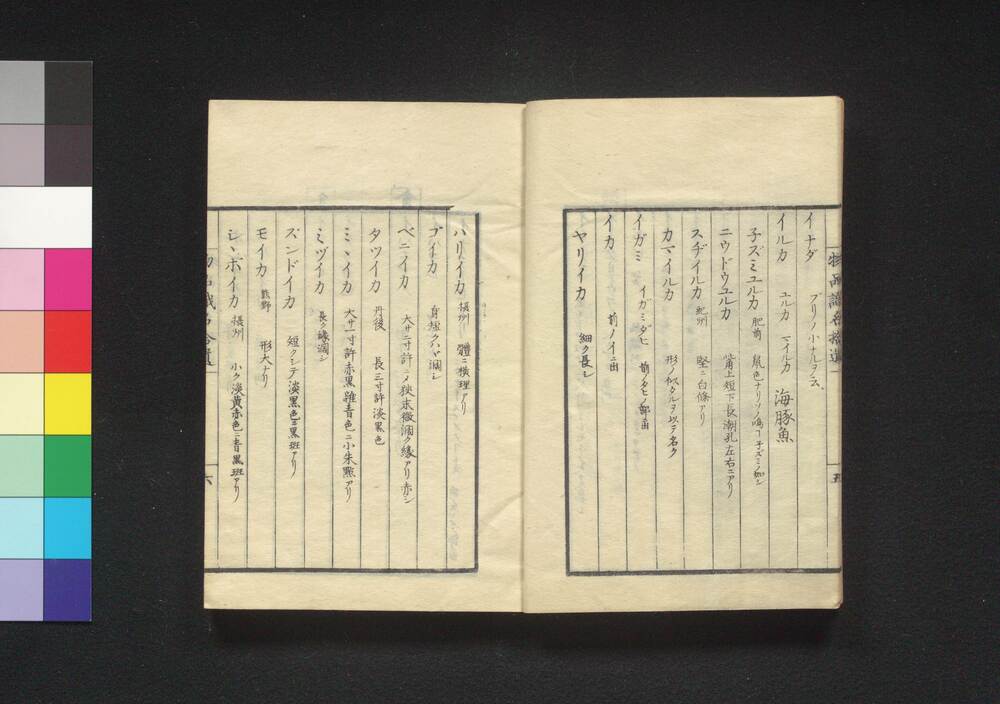 イナダ ブリノ小ナルヲ云
イルカ ユルカ マイルカ 海豚魚
子ズミユルカ 肥前 鼠色ナリソノ鳴
ニウドウユルカ 上短下長潮孔左右ニアリ
スヂイルカ 紀州 竪ニ白條アリ
カマイルカ 形ノ似タルヲ以テ名ク
イガミ イガミダヒ
イカ 前ノイニ出
ヤリイカ 細ク長シ
物品識名拾遺
五
ハリイカ 摂州 體ニ横理アリ
ゴイカ 身短クハヾ濶シ
ベニイカ 大サ二寸許ニ〆狹末微濶ク緣アリ赤シ
タツイカ 丹後 長三寸許淡黒色
ミヽイカ 大サ一寸許赤黒雜青色ニ小朱㸃アリ
ミヅイカ 長ク緣濶シ
ズンドイカ 短クシテ淡黒色ニ黒斑アリ
モイカ 熊野 形大ナリ
シヽボイカ 摂州 小ク淡黄赤色ニ青黒斑アリ
六